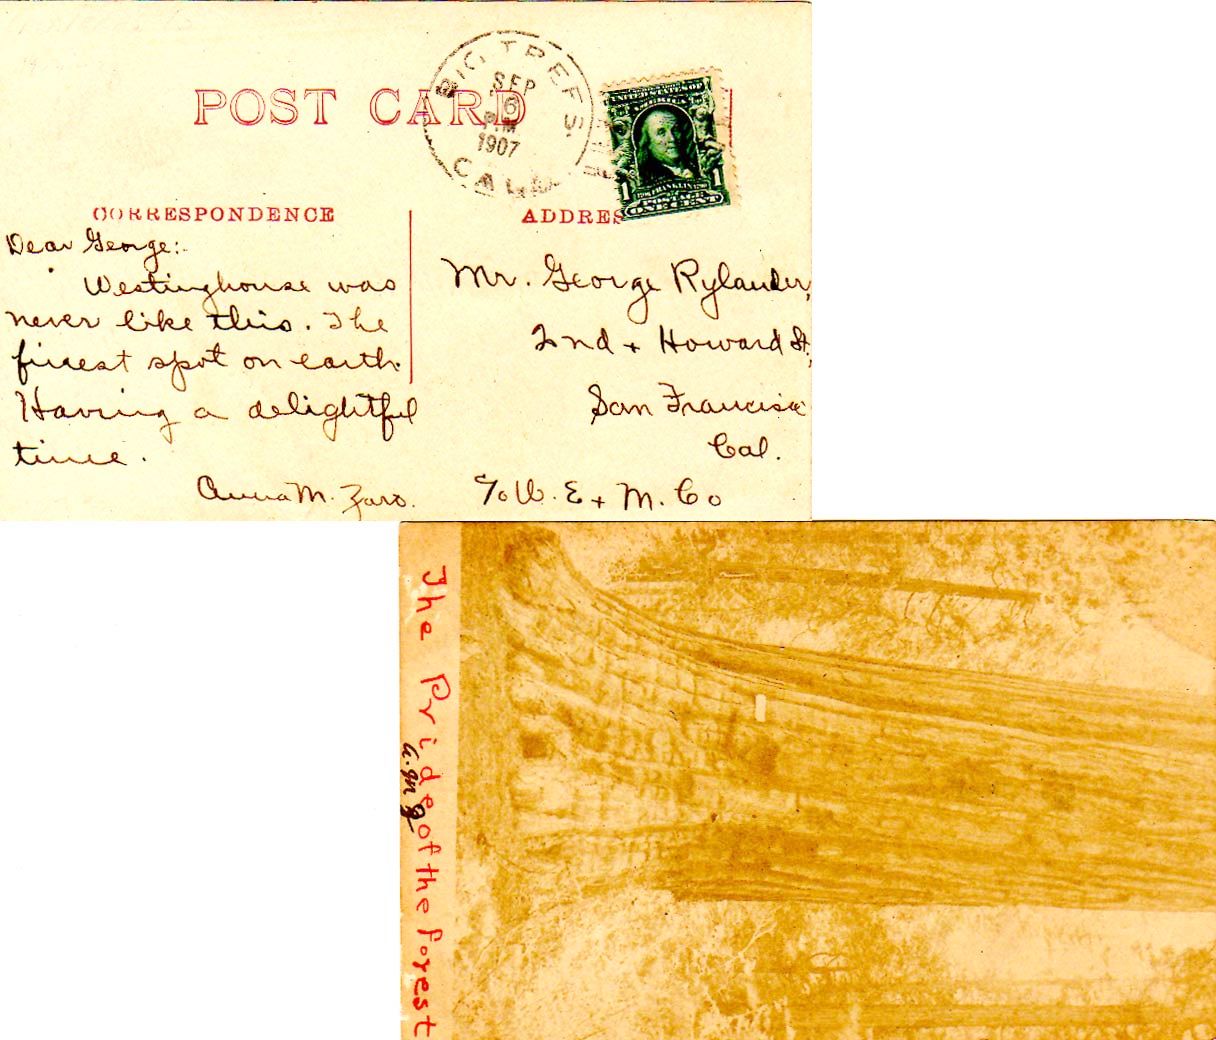 POST CARD
BIG TREES,
SEP
6
P.M
1907
CAL.
1 FRANKLIN 1
ONE CENT
CORRESPONDENCE
ADDRES
Dear George:
Westinghouse was
never like this. The
finest spot on earth.
Having a delightful
time.
Anna M. Zaro.
Mr. George Rylander,
2nd + Howard St,
San Francisco
Cal.
c/o W. E + M. Co
The Pride of the Forest
a.m z